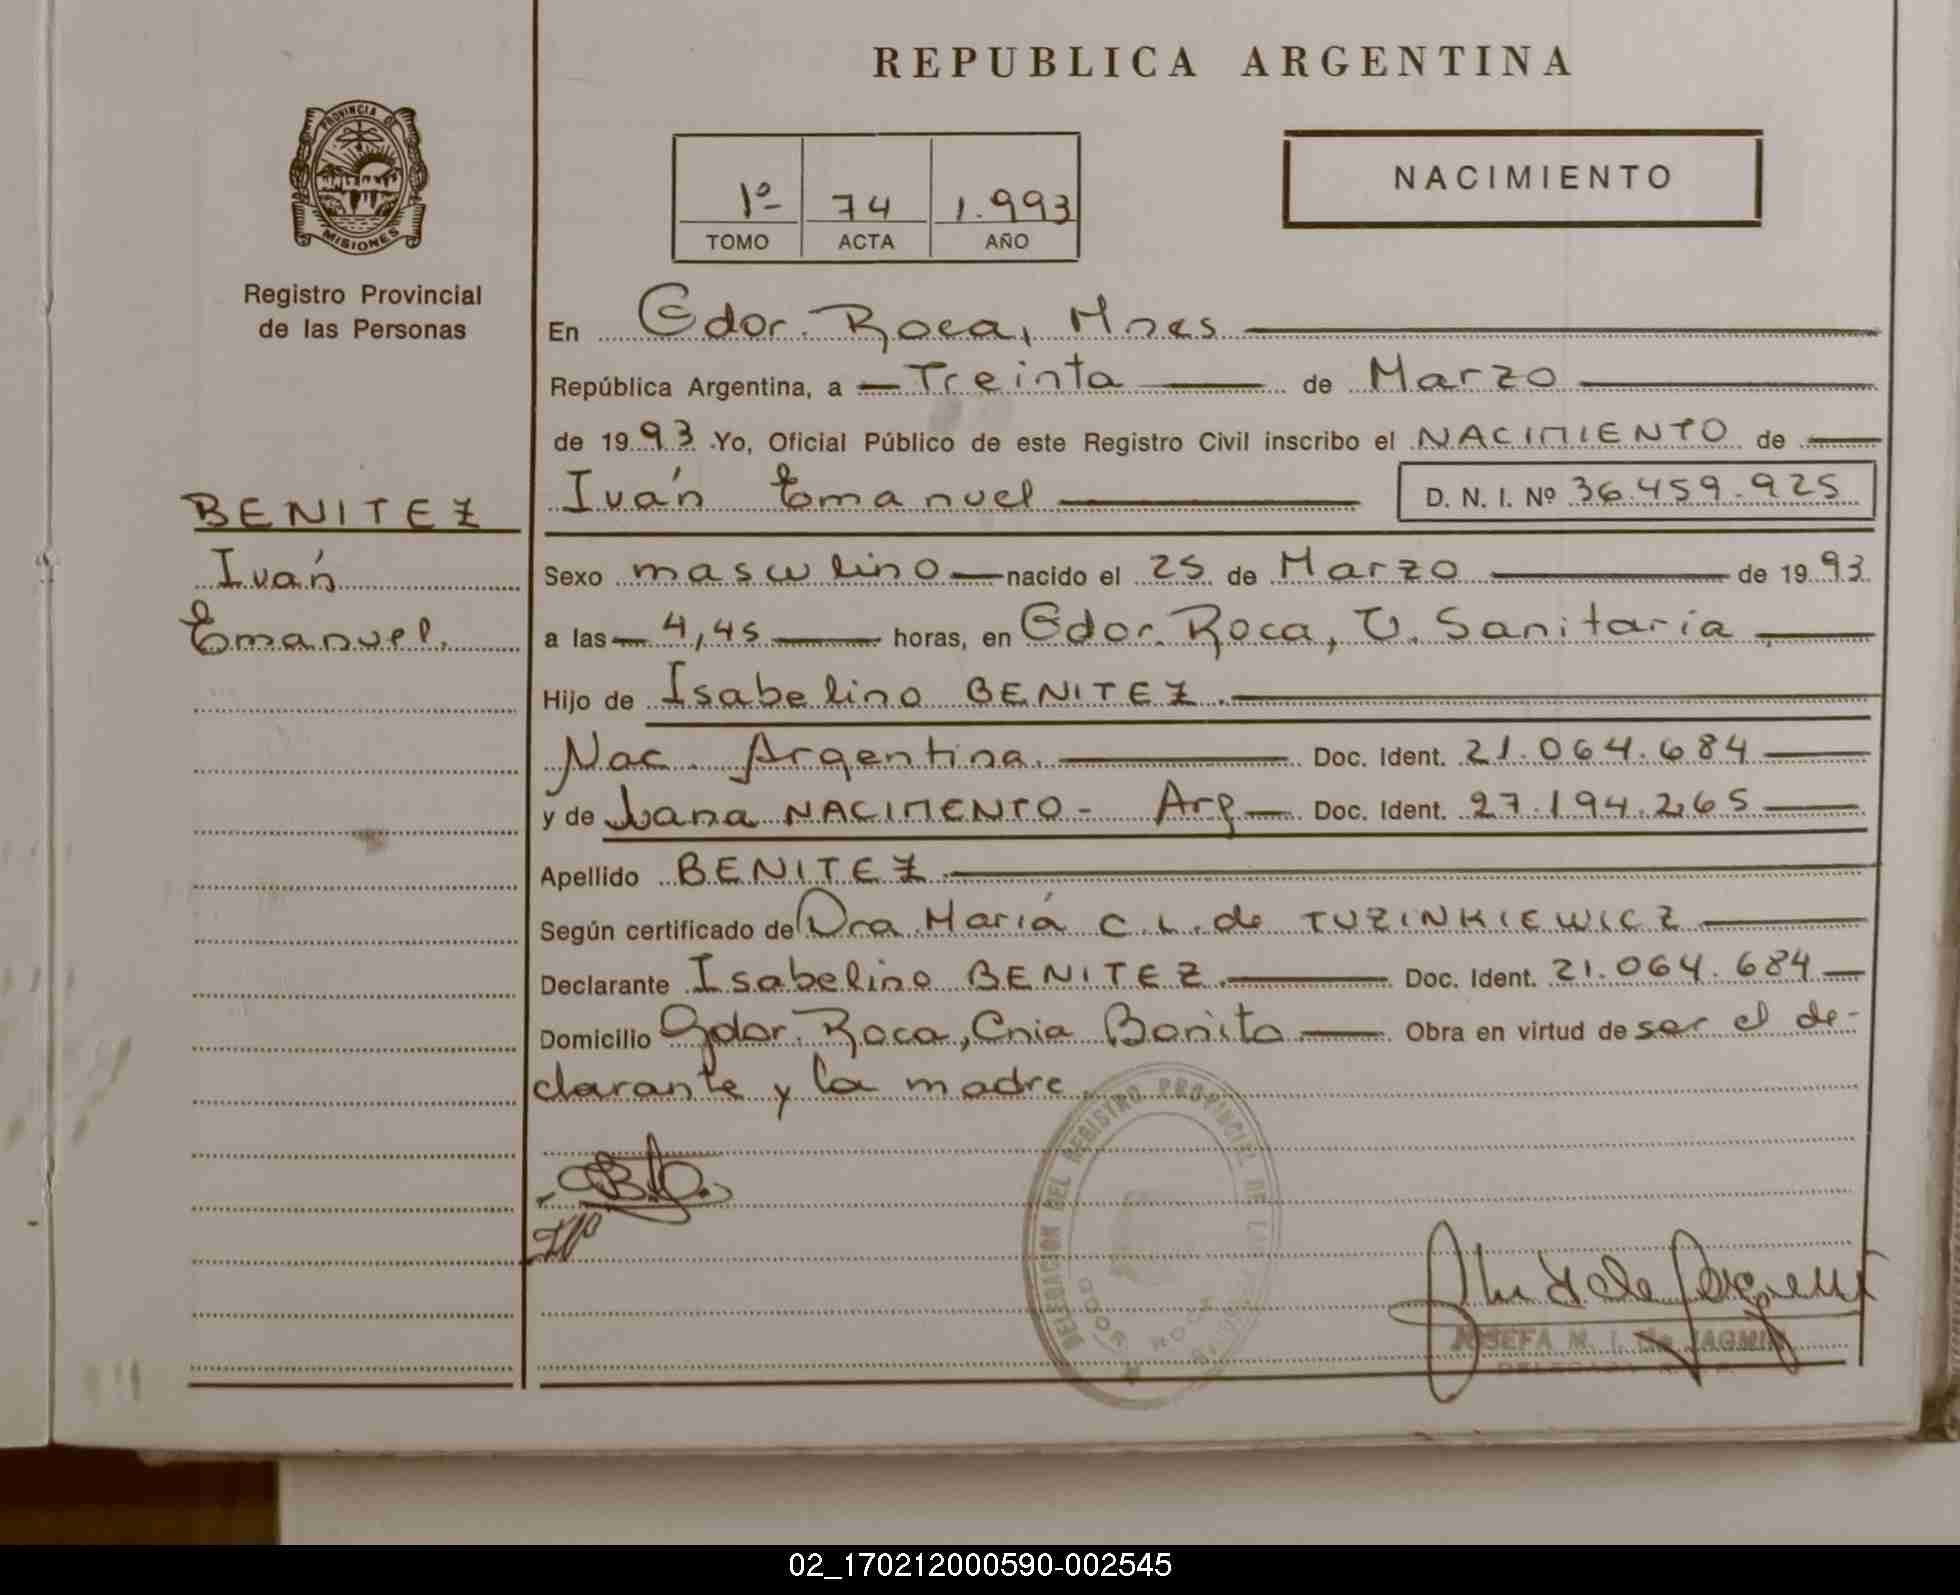 REPUBLICA ARGENTINA
PROVINCIA DE
MISIONES
Registro Provincial
de las Personas
1º 74 1.993
TOMO ACTA AÑO
NACIMIENTO
En Gdor. Roca, Mnes
República Argentina, a Treinta de Marzo
de 1993 Yo, Oficial Público de este Registro Civil inscribo el NACIMIENTO de
BENITEZ
Iván
Emanuel.
Iván Emanuel D. N. I. Nº 36.459.925
Sexo masculino nacido el 25 de Marzo de 1993
a las 4,45 horas, en Gdor. Roca, U. Sanitaria
Hijo de Isabelino BENITEZ.
Nac. Argentina. Doc. Ident. 21.064.684
y de Juana NACIMENTO - Arg Doc. Ident. 27.194.265
Apellido BENITEZ
Según certificado de Dra. María C. L. de TUZINKIEWICZ
Declarante Isabelino BENITEZ. Doc. Ident. 21.064.684
Domicilio Gdor. Roca, Cnia Bonito Obra en virtud de ser el de-
clarante y la madre.
DELEGACION DEL REGISTRO PROVINCIAL DE LAS
GDOR ROCA
JOSEFA M. I. de
02_170212000590-002545